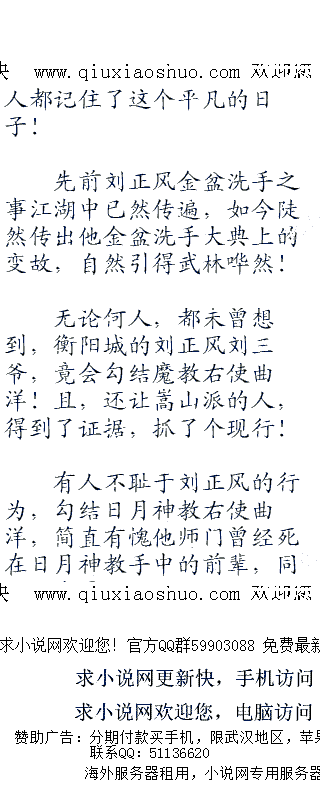 快 www.qiuxiaoshuo.com 欢迎您
人都记住了这个平凡的日
子！
先前刘正风金盆洗手之
事江湖中已然传遍，如今陡
然传出他金盆洗手大典上的
变故，自然引得武林哗然！
无论何人，都未曾想
到，衡阳城的刘正风刘三
爷，竟会勾结魔教右使曲
洋！且，还让嵩山派的人，
得到了证据，抓了个现行！
有人不耻于刘正风的行
为，勾结日月神教右使曲
洋，简直有愧他师门曾经死
在日月神教手中的前辈，同
快 www.qiuxiaoshuo.com 欢迎您
求小说网欢迎您！官方QQ群59903088 免费最新
求小说网更新快，手机访问
求小说网欢迎您，电脑访问
赞助广告：分期付款买手机，限武汉地区，苹果
联系QQ：51136620
海外服务器租用，小说网专用服务器